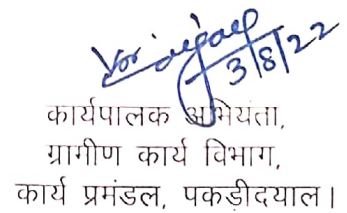 3/8/22
कार्यपालक अभियंता,
ग्रामीण कार्य विभाग,
कार्य प्रमंडल, पकड़ीदयाल।